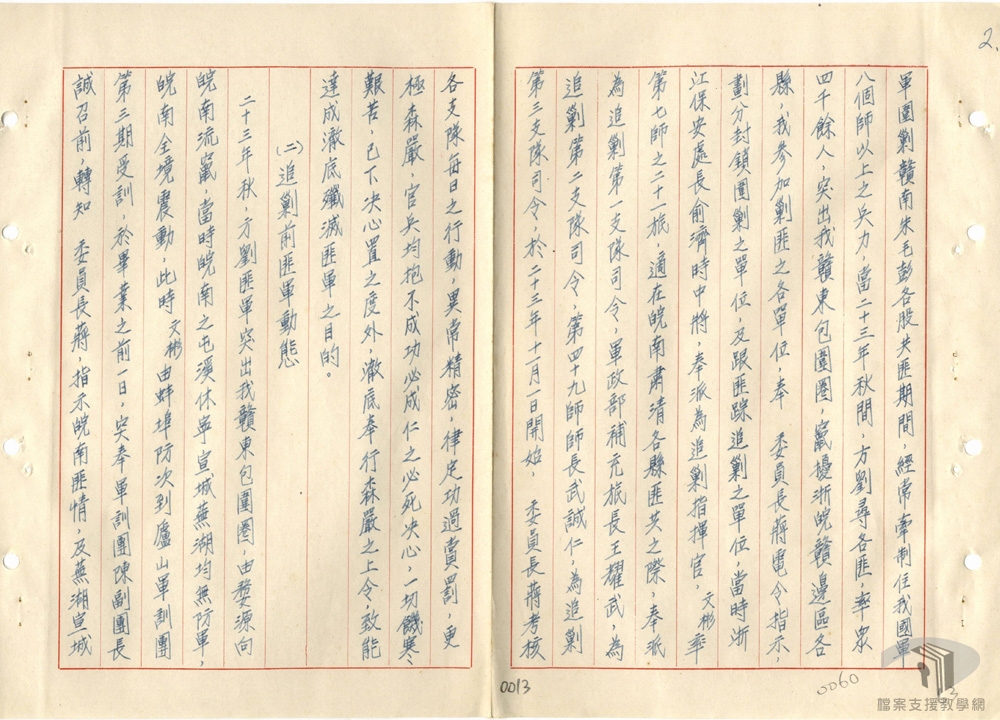 2.
軍圍剿贛南朱毛彭各股共匪期間，經常牽制住我國軍
八個師以上之兵力，當二十三年秋間，方劉尋各匪，率眾
四千餘人，突出我贛東包圍圈，竄擾浙皖贛邊區各
縣，我參加剿匪之各單位，奉　委員長蔣電令指示，
劃分封鎖圍剿之單位，及跟匪踪追剿之單位，當時浙
江保安處長俞濟時中將，奉派為追剿指揮官，文彬率
第七師之二十一旅，適在皖南肅清各縣匪共之際，奉派
為追剿第一支隊司令，軍政部補充旅長王耀武，為
追剿第二支隊司令，第四十九師師長武誠仁，為追剿
第三支隊司令，於二十三年十一月一日開始，　委員長蔣考核
各支隊每日之行動，異常精密，律定功過賞罰，更
極森嚴，官兵均抱不成功必成仁之必死決心，一切饑寒、
艱苦，已下決心置之度外，澈底奉行森嚴之上令，致能
達成澈底殲滅匪軍之目的。
(二)追剿前匪軍動態
二十三年秋，方劉匪軍突出我贛東包圍圈，由婺源向
皖南流竄，當時皖南之屯溪休寧宣城蕪湖均無防軍，
皖南全境震動，此時文彬由蚌埠防次到廬山軍訓團
第三期受訓，於畢業之前一日，突奉軍訓團陳副團長
誠召前，轉知　委員長蔣，指示皖南匪情，及蕪湖宣城
0013
0060
3
檔案支援教學網